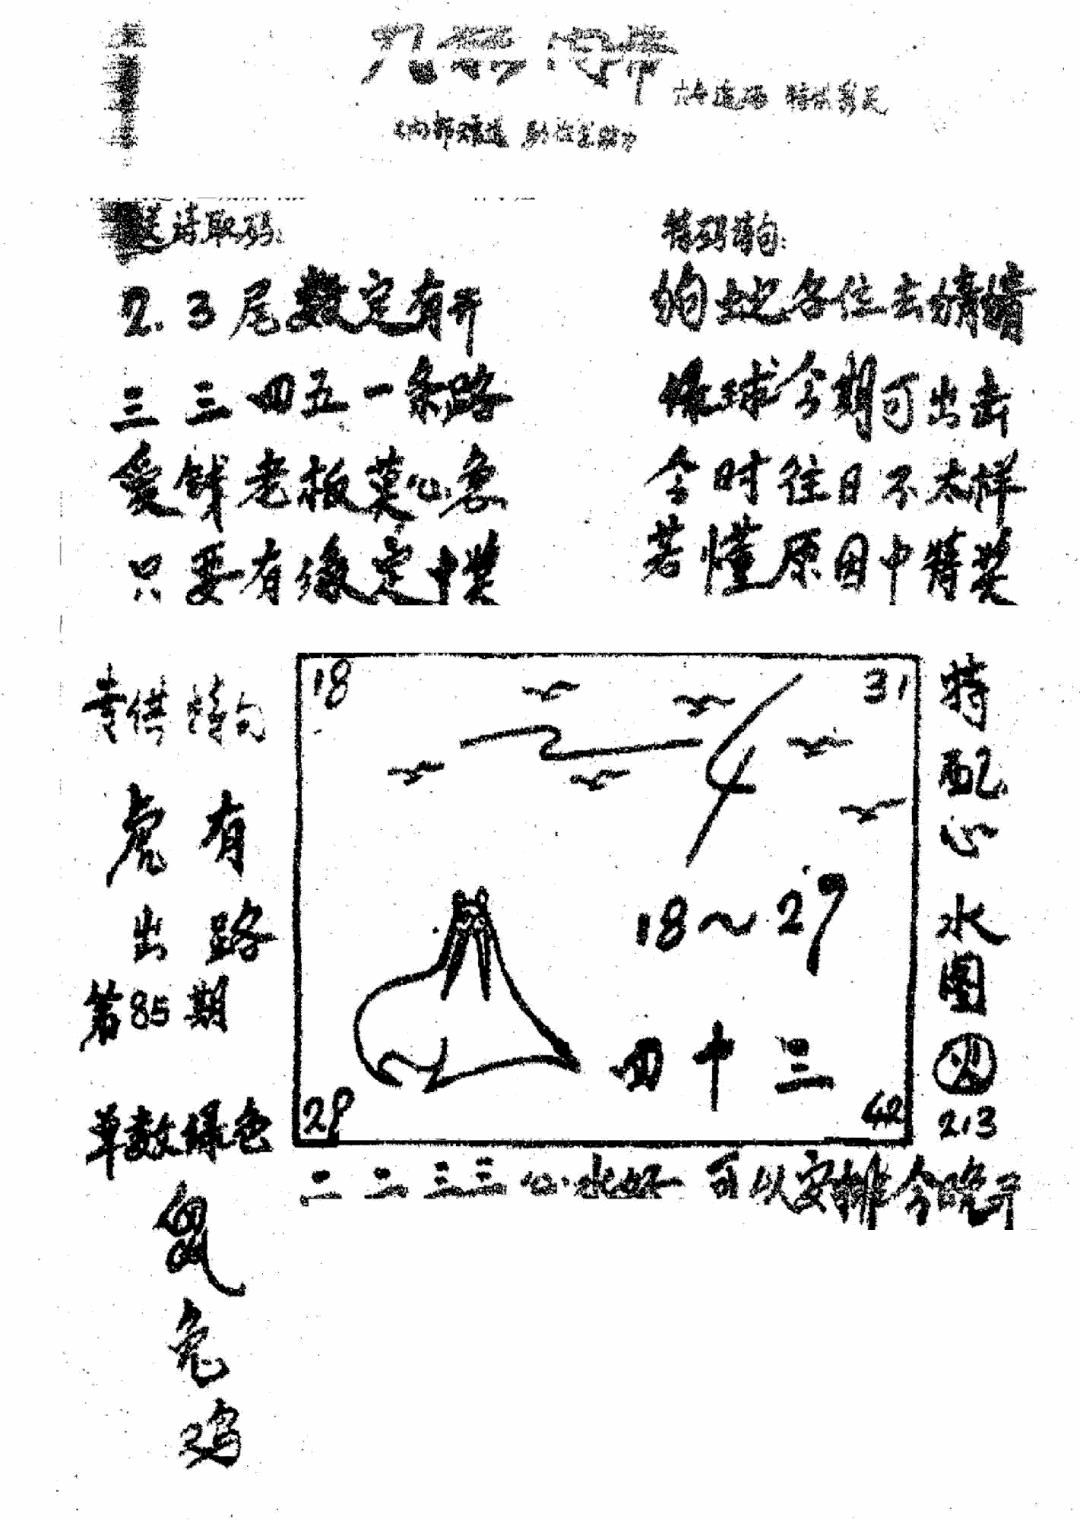 送诗取码:
2.3尾数定有开
三三四五一条路
爱钱老板莫心急
只要有缘定中奖
特码诗句:
各位去猜猜
绿球今期可出击
今时往日不太样
若懂原因中特奖
供诗句
虎有
出路
第85期
单数绿色
鼠
兔
鸡
18
31
18~29
四十三
29
42
特配心水图
2.13
二二三三心水好 可以安排今晚开